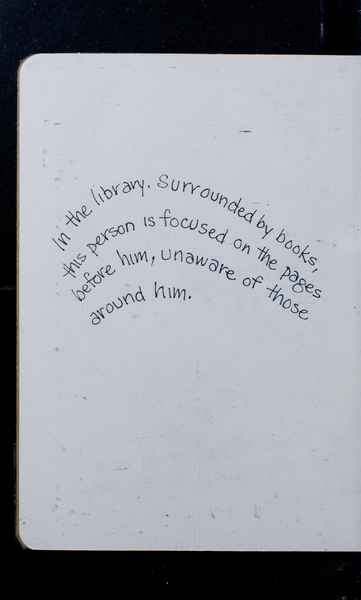 In the library. Surrounded by books,
this person is focused on the pages
before him, unaware of those
around him.